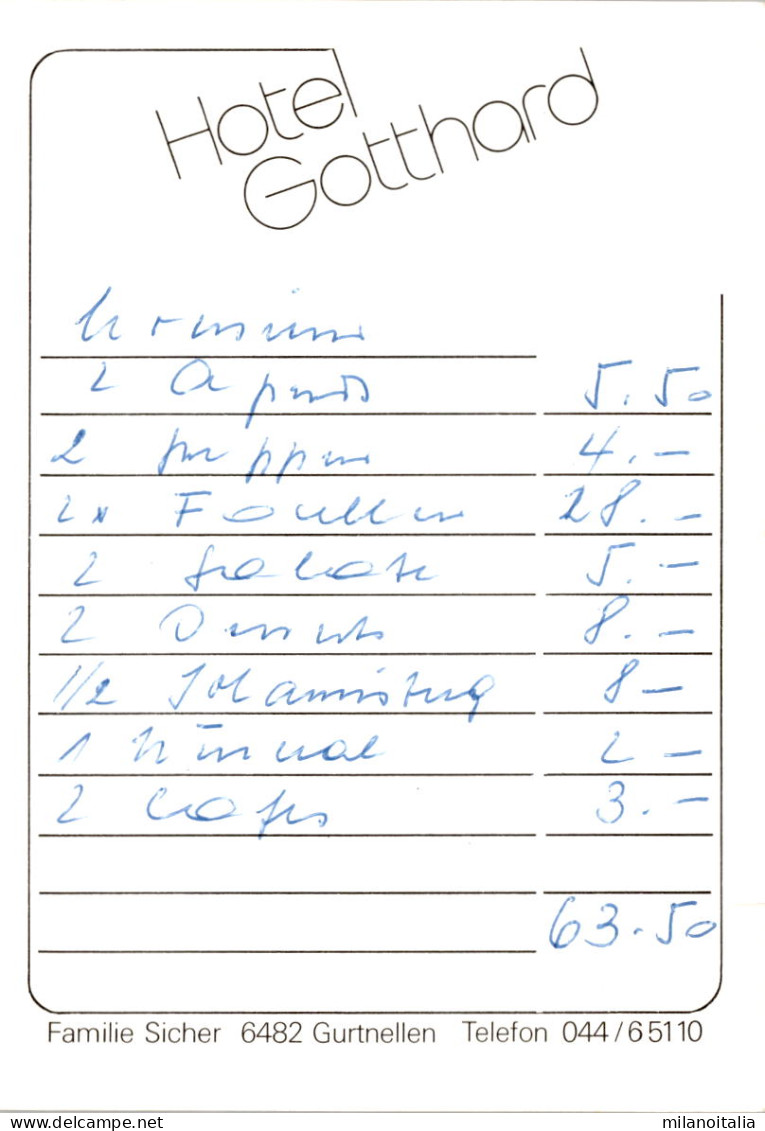 Hotel
Gotthard
Monsieur
2 Aperos 5.50
2 Suppen 4.–
2x Forellen 28.–
2 Salate 5.–
2 Desserts 8.–
1/2 Johannisberg 8–
1 Mineral 2–
2 Cafes 3.–
63.50
Familie Sicher 6482 Gurtnellen Telefon 044/65110
milanoitalia